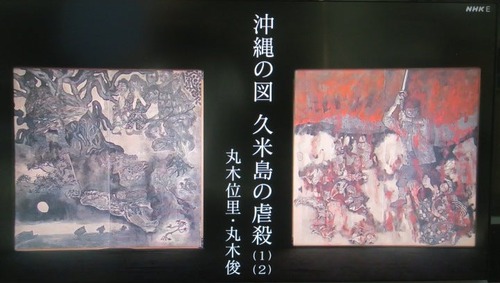 NHK E
沖縄の図 久米島の虐殺(1)(2)
丸木位里・丸木俊